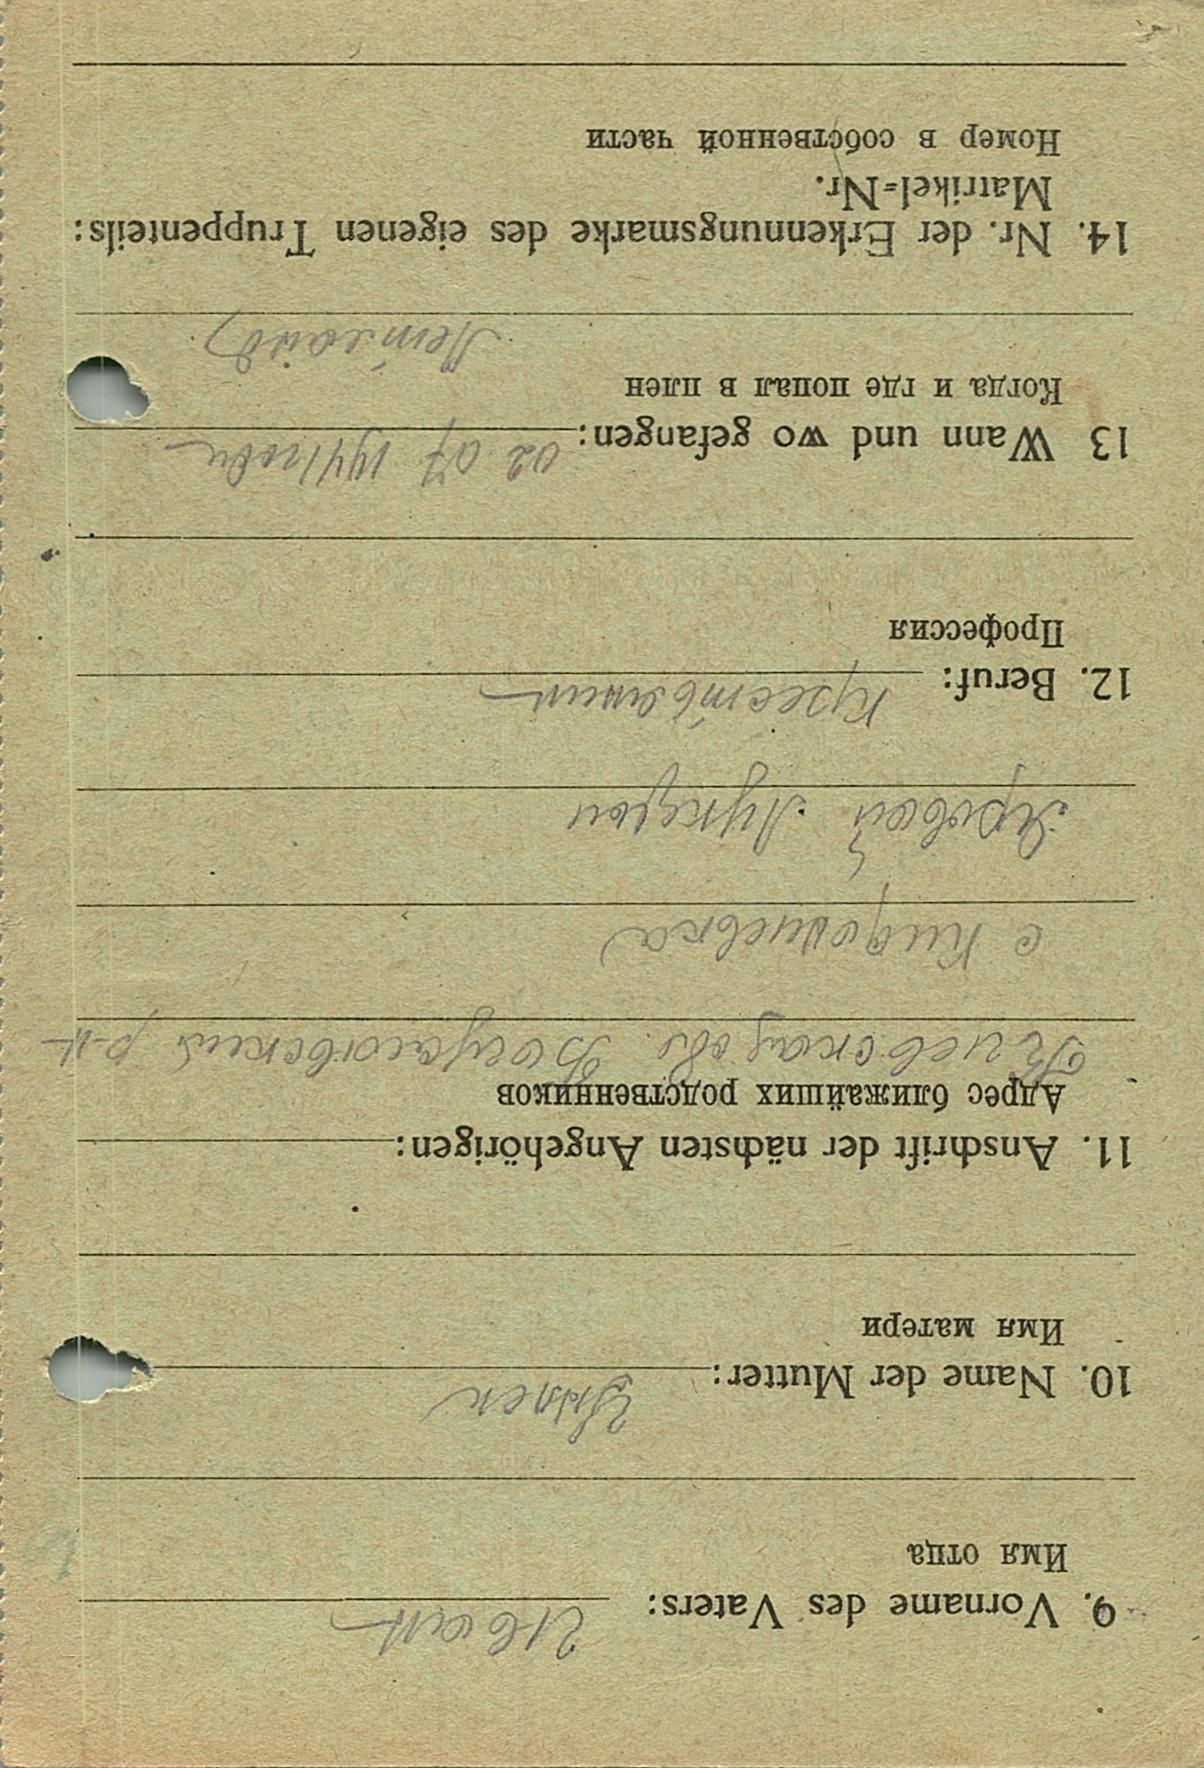 9. Vorname des Vaters: Иван
Имя отца
10. Name der Mutter:
Имя матери
11. Anschrift der nächsten Angehörigen:
Адрес ближайших родственников
Киевская обл. Богуславский р-н
с
Яровой Лукерьи
12. Beruf: крестьянин
Профессия
13 Wann und wo gefangen: 02 07 1941 года
Когда и где попал в плен
14. Nr. der Erkennungsmarke des eigenen Truppenteils:
Matrikel=Nr.
Номер в собственной части